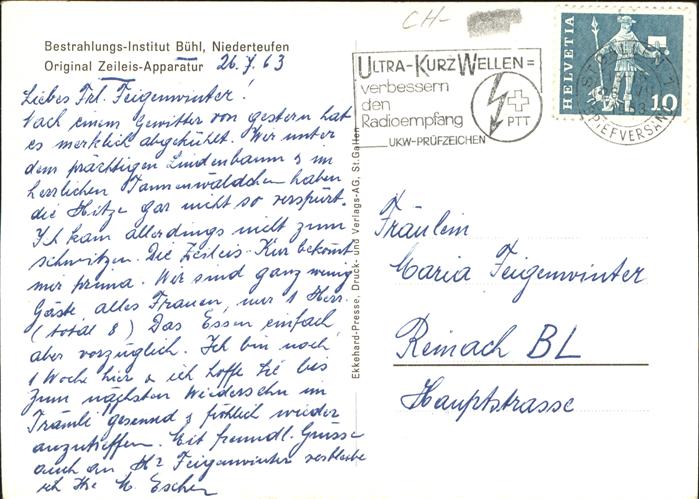 CH-
Bestrahlungs-Institut Bühl, Niederteufen
Original Zeileis-Apparatur 26.7.63
Liebes Frl. Feigenwinter!
Nach einem Gewitter von gestern hat
es merklich abgekühlt. Wir unter
dem prächtigen Lindenbaum & im
herrlichen Tannenwäldchen haben
die Hitze gar nicht so verspürt.
Ich kam allerdings nicht zum
schwitzen. Die Zeileis-Kur bekommt
mir prima. Wir sind ganz wenig
Gäste, alles Frauen, nur 1 Herr.
(total 8) Das Essen einfach,
aber vorzüglich. Ich bin noch
1 Woche hier & ich hoffe Sie bis
zum nächsten Wiedersehn im
Trämli gesund & fröhlich wieder
anzutreffen. Mit freundl. Grüsse
auch an Hr Feigenwinter verbleibe
ich Ihr M. Escher
Ekkehard-Presse, Druck- und Verlags-AG, St.Gallen
ULTRA-KURZWELLEN=
verbessern
den
Radioempfang
UKW-PRÜFZEICHEN
PTT
HELVETIA
10
BRIEFVERSAND
Fräulein
Maria Feigenwinter
Reinach BL
Hauptstrasse